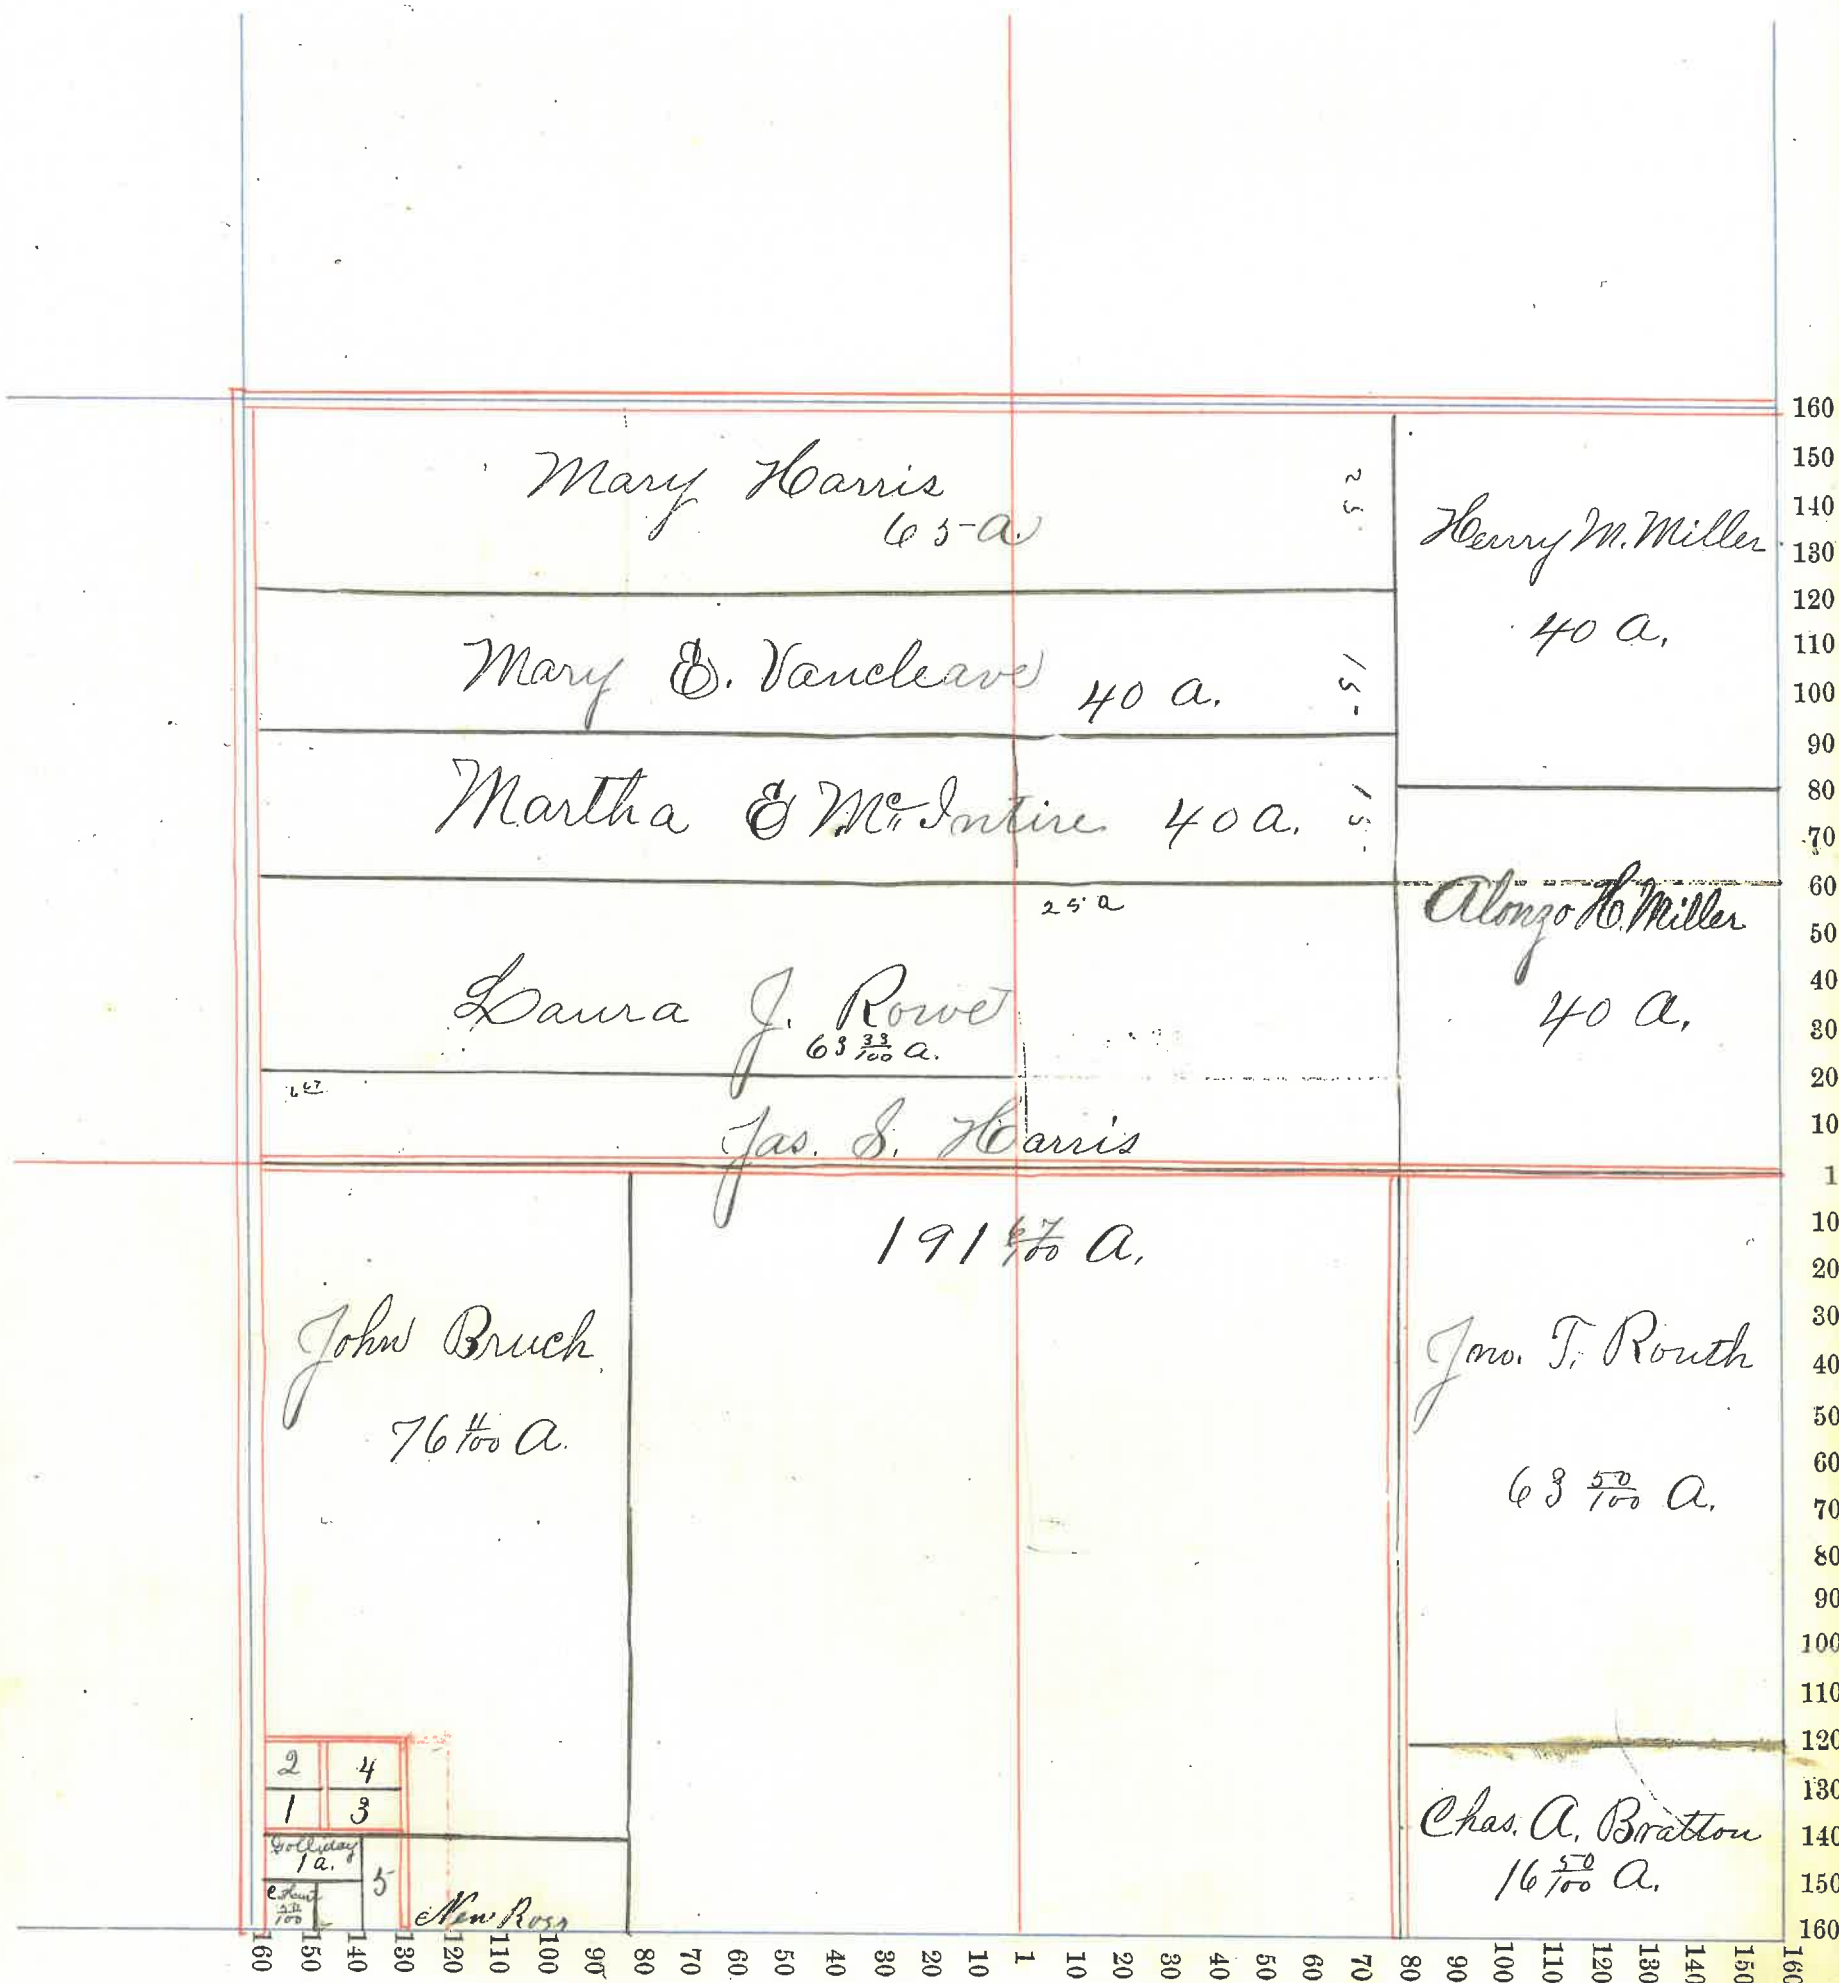 Mary Harris
65 a.
25
Henry M. Miller
40 A.
Mary E. Vancleave 40 a.
15
Martha E McIntire 40 a.
15
25 a
Alonzo H. Miller
40 A.
Laura J. Rowe
63 33/100 a.
Jas. S. Harris
191 67/100 A.
John Bruch
76 11/100 A.
Jno. T. Routh
63 50/100 A.
2 4
1 3
Golliday
1 a.
5
New Ross
Chas. A. Bratton
16 50/100 A.
160
150
140
130
120
110
100
90
80
70
60
50
40
30
20
10
1
10
20
30
40
50
60
70
80
90
100
110
120
130
140
150
160
160 150 140 130 120 110 100 90 80 70 60 50 40 30 20 10 1 10 20 30 40 50 60 70 80 90 100 110 120 130 140 150 160